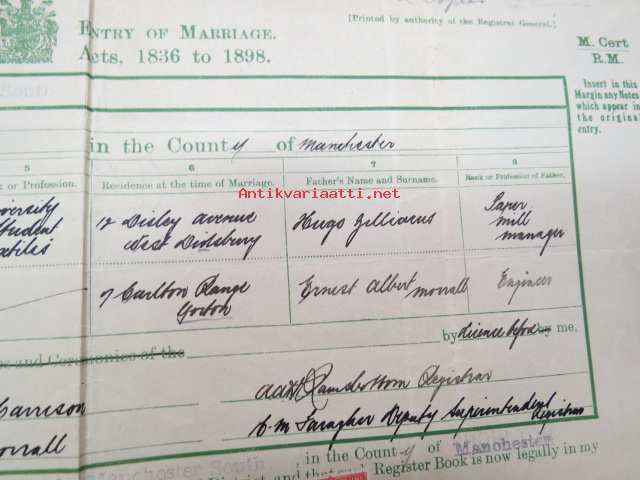 [Printed by authority of the Registrar General.]
ENTRY OF MARRIAGE.
Acts, 1836 to 1898.
M. Cert
R.M.
Insert in this
Margin any Notes
which appear in
the original
entry.
South
in the County of Manchester
5 6 7 8
or Profession. Residence at the time of Marriage. Father's Name and Surname. Rank or Profession of Father.
Antikvariaatti.net
12 Disley Avenue
West Didsbury
Hugo Jilliacus
Paper
mill
manager
Student
7 Carlton Range
Gorton
Ernest Albert Morrall
Engineer
and Ceremonies of the by licence before by me,
Ramsbottom Registrar
C. M. Faragher Deputy Superintendent
Registrar
Garrison
Morrall
Manchester South, in the County of Manchester
District and that Register Book is now legally in my